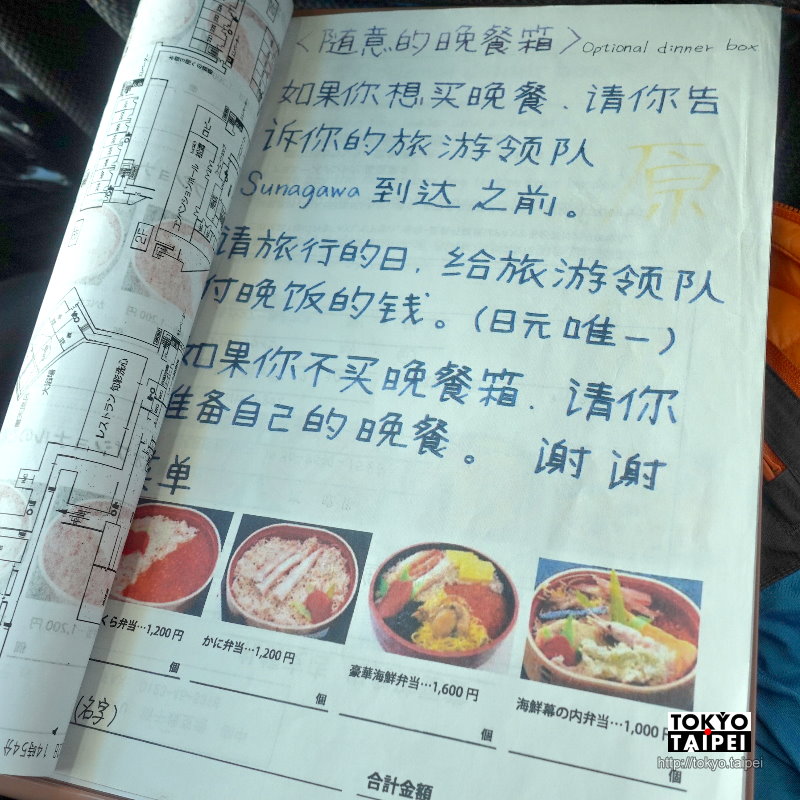 〈随意的晚餐箱〉Optional dinner box
如果你想买晚餐、请你告
诉你的旅游领队
Sunagawa 到达之前。
请旅行的日,给旅游领队
付晚饭的钱。(日元唯一)
如果你不买晚餐箱、请你
准备自己的晚餐。 谢谢
菜单
くら弁当…1,200円
かに弁当…1,200円
豪華海鮮弁当…1,600円
海鮮幕の内弁当…1,000円
個
個
個
個
(名字)
合計金額
レストラン 旬彩洗心
コンベンションホール
大浴場
2F
14時54分
TOKYO
TAIPEI
http://tokyo.taipei